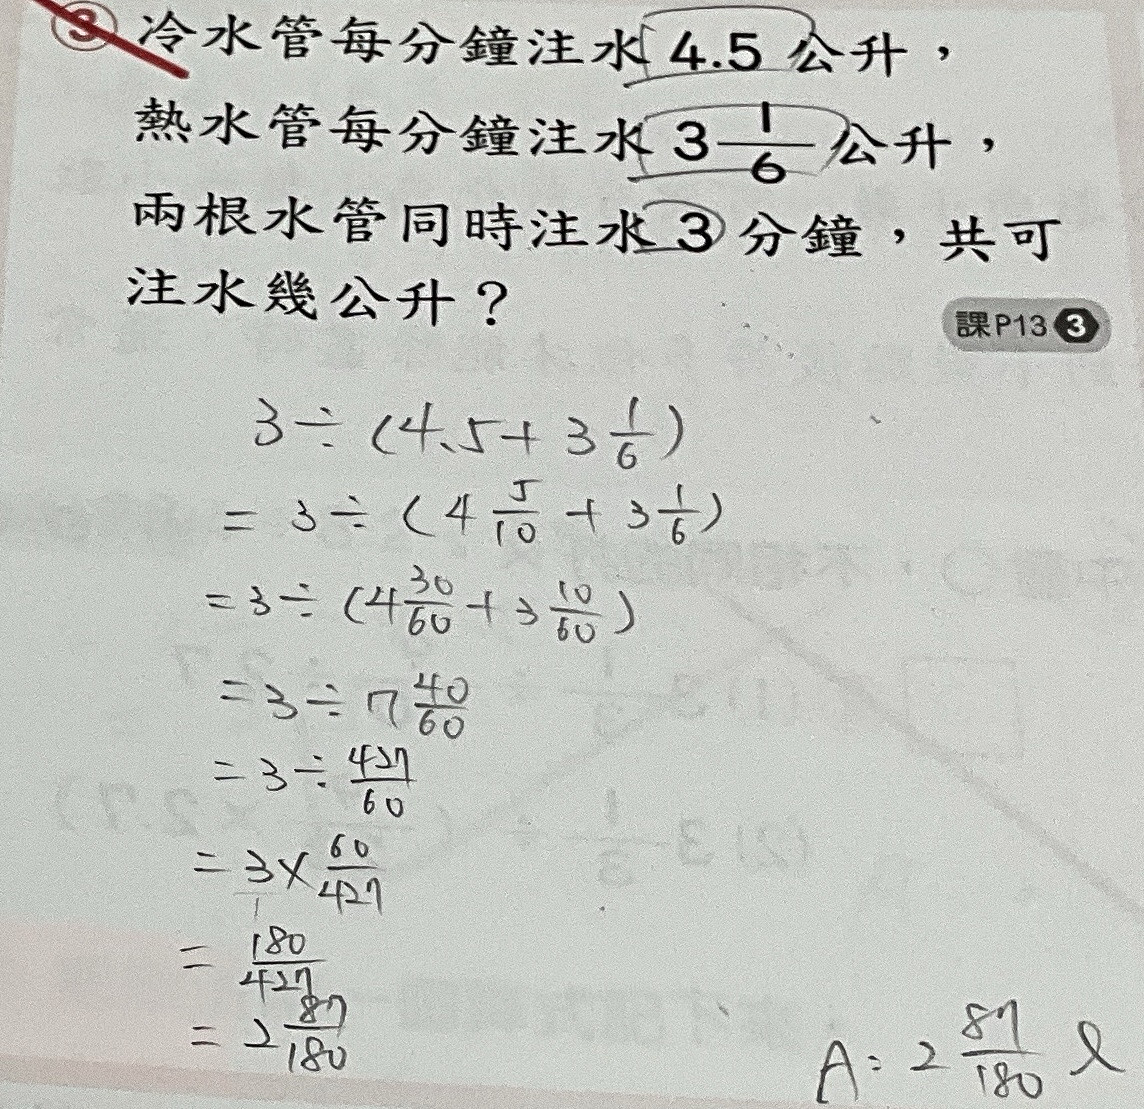 ③ 冷水管每分鐘注水 4.5 公升，
熱水管每分鐘注水 3 1/6 公升，
兩根水管同時注水 3 分鐘，共可
注水幾公升？
課P13 ❸
3÷(4.5+3 1/6)
=3÷(4 5/10+3 1/6)
=3÷(4 30/60+3 10/60)
=3÷7 40/60
=3÷427/60
=3×60/427
=180/427
=2 87/180
A: 2 87/180 ℓ